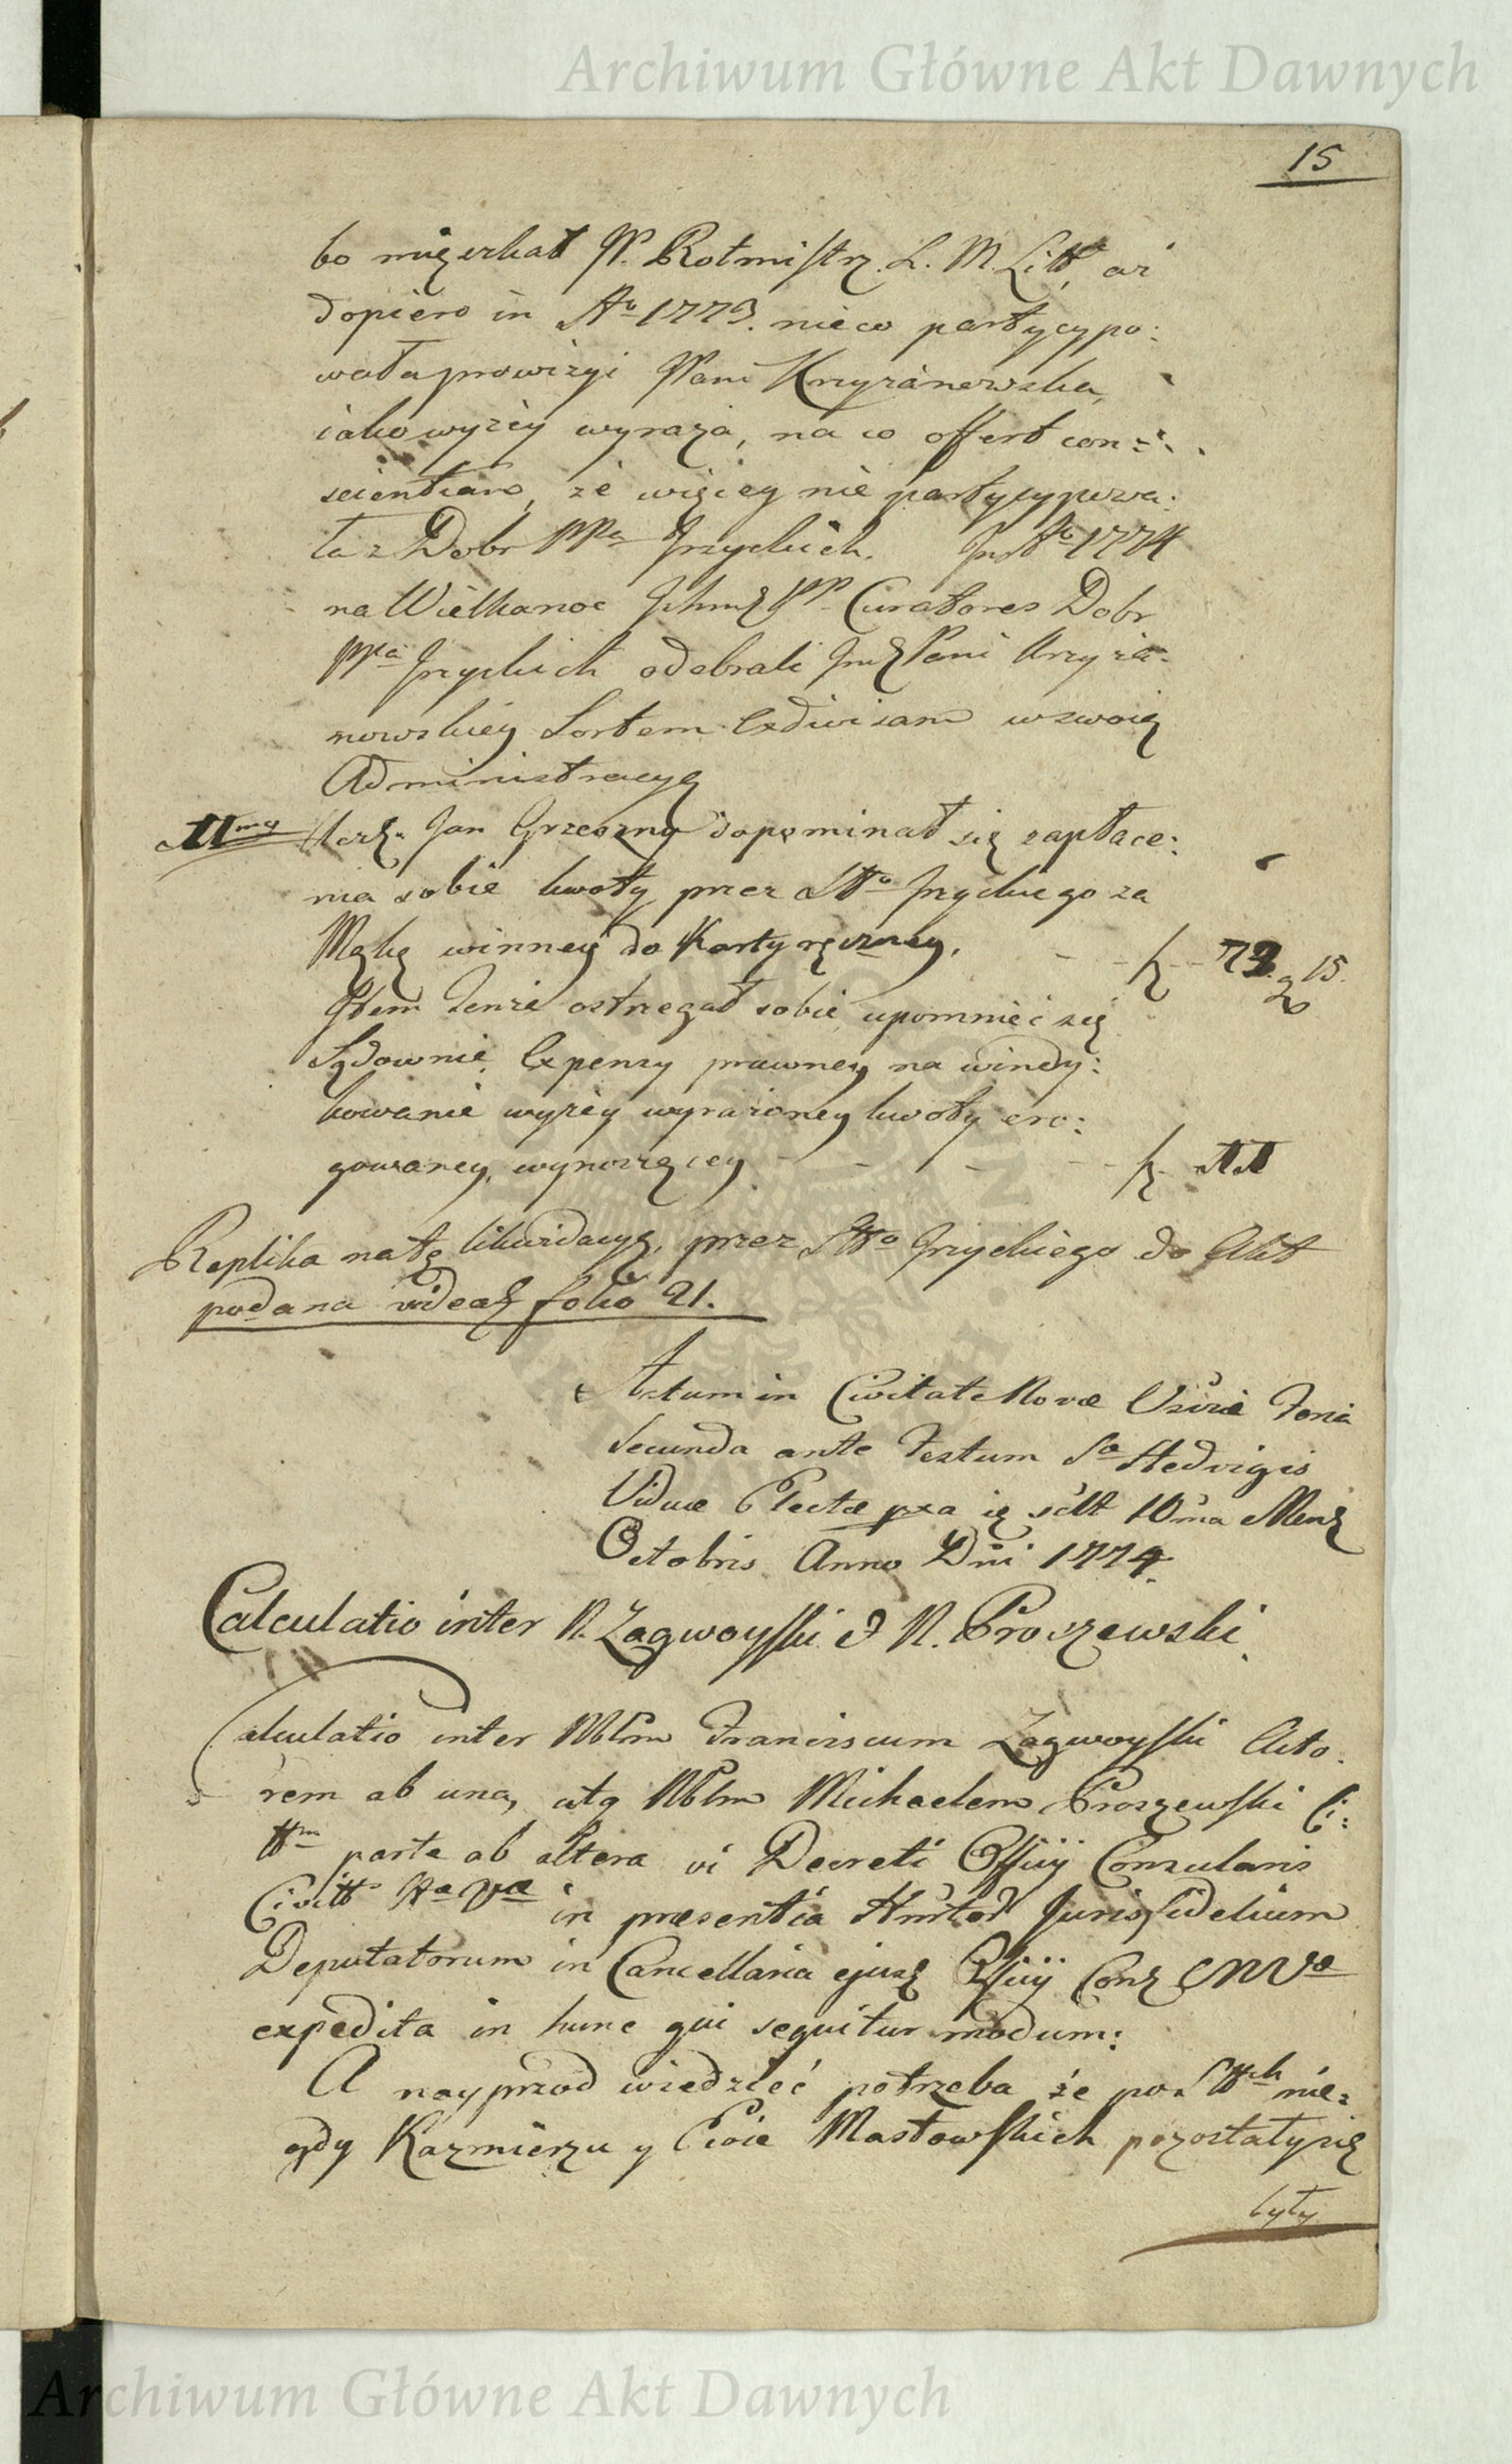 Archiwum Główne Akt Dawnych
15
bo mięszkał P. Rotmistrz L. M. Litt, aż
dopiero in Ao 1773. nieco partycypo:
wała prowizyi Pani Krzyżanowska,
iako wyżéy wyraża, na co offert con=
scientiam, że więcey nie partycypowa:
ła z Dobr Jrzyckich. In Ao 1774
na Wielkanoc PP Curatores Dobr
Jrzyckich odebrali Pani Krzyża-
nowskiey Sortem Exdivisam w swoię
Administracyą
11my Jan Grzeszny dopominał się zapłace:
nia sobie kwoty przez Jrzyckiego za
Mąkę winney do Karty ręczney, - - f - 73 g 15.
Item Tenże ostrzegał sobie upomnieć się
Sądownie, Expensy prawney na windy:
kowanie wyżéy wyrażoney kwoty ero:
gowaney, wynoszącey - - - - - f - 11
Replika na tę likwidacyą, przez Jrzyckiego do Akt
podana videas folio 21.
Actum in Civitate Novæ Usciæ Feria
Secunda ante Festum Sæ Hedvigis
Viduæ Electæ pxa ię scilt 10ma Mens
Octobris Anno Dni 1774.
Calculatio inter N. Zagwoyski & N. Proszewski.
Calculatio inter Nblm Franciscum Zagwoyski Acto.
rem ab una, atq Nblm Michaelem Proszewski Ci:
ttm parte ab altera vi Decreti Officij Consularis
Civitt in præsentia Juris fidelium
Deputatorum in Cancellaria ejusd Officij Cons CNVæ
expedita in hunc qui sequitur modum:
A nayprzod wiedzieć potrzeba że po nie=
gdy Kazmierzu y Ewie Masłowskich pozostały się
były
Archiwum Główne Akt Dawnych